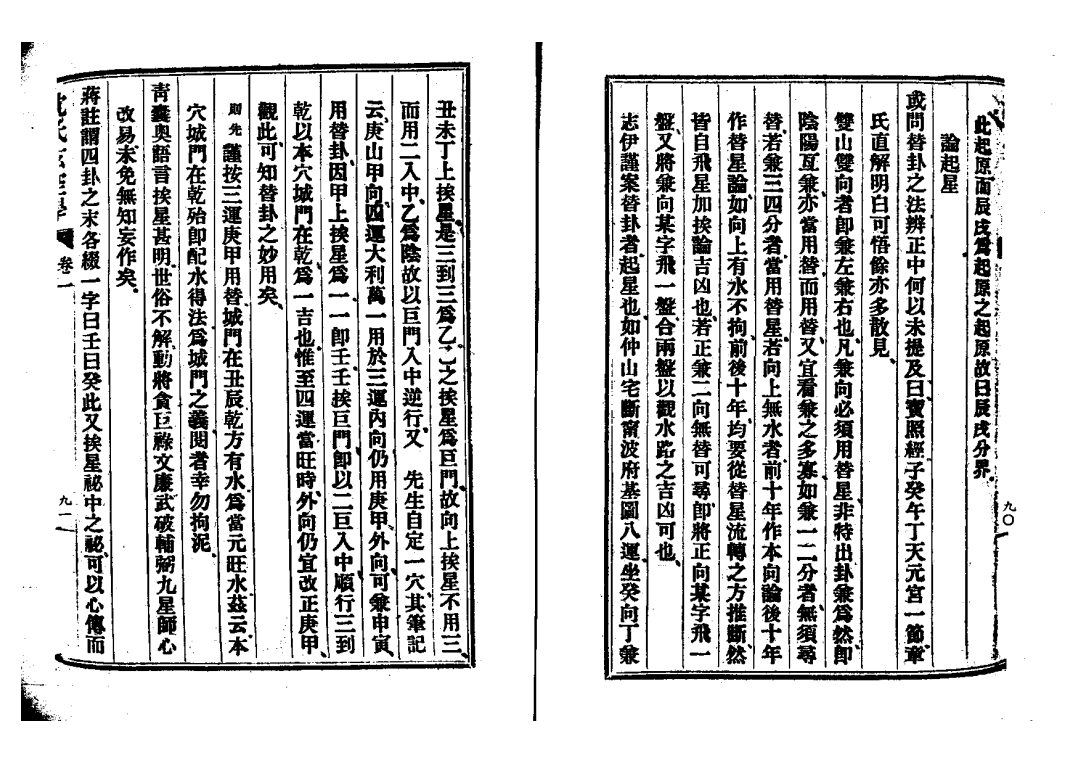 此起原而辰戌爲起原之起原故曰辰戌分界、
論起星
或問替卦之法辨正中何以未提及曰寶照經子癸午丁天元宮一節章
氏直解明白可悟餘亦多散見、
雙山雙向者卽兼左兼右也、凡兼向必須用替星、非特出卦兼爲然、卽
陰陽互兼、亦當用替、而用替、又宜看兼之多寡、如兼一二分者、無須尋
替、若兼三四分者、當用替星、若向上無水者、前十年作本向論、後十年
作替星論、如向上有水不拘、前後十年、均要從替星流轉之方推斷、然
皆自飛星加挨論吉凶也、若正兼二向無替可尋、卽將正向某字飛一
盤、又將兼向某字飛一盤、合兩盤以觀水路之吉凶可也、
志伊謹案替卦者、起星也、如仲山宅斷甯波府基圖八運、坐癸向丁兼
九〇
丑未丁上挨星、是三到三爲乙、乙之挨星爲巨門、故向上挨星不用三、
而用二入中、乙爲陰故以巨門入中逆行、又　先生自定一穴、其筆記
云、庚山甲向、四運大利萬一用於三運內向仍用庚甲、外向可兼申寅、
用替卦、因甲上挨星爲一、一卽壬、壬挨巨門、卽以二巨入中、順行三到
乾以本穴城門在乾、爲一吉也、惟至四運當旺時、外向仍宜改正庚甲、
觀此、可知替卦之妙用矣、
則先謹按三運庚甲用替、城門在丑辰乾方有水爲當元旺水、茲云、本
穴城門在乾殆卽配水得法、爲城門之義、閱者幸勿拘泥、
青囊奧語言挨星甚明、世俗不解、動將貪巨祿文廉武破輔弼九星師心
改易、未免無知妄作矣、
蔣註謂四卦之末各綴一字曰壬曰癸此又挨星祕中之祕、可以心傳而
沈氏玄空學 卷二
九一